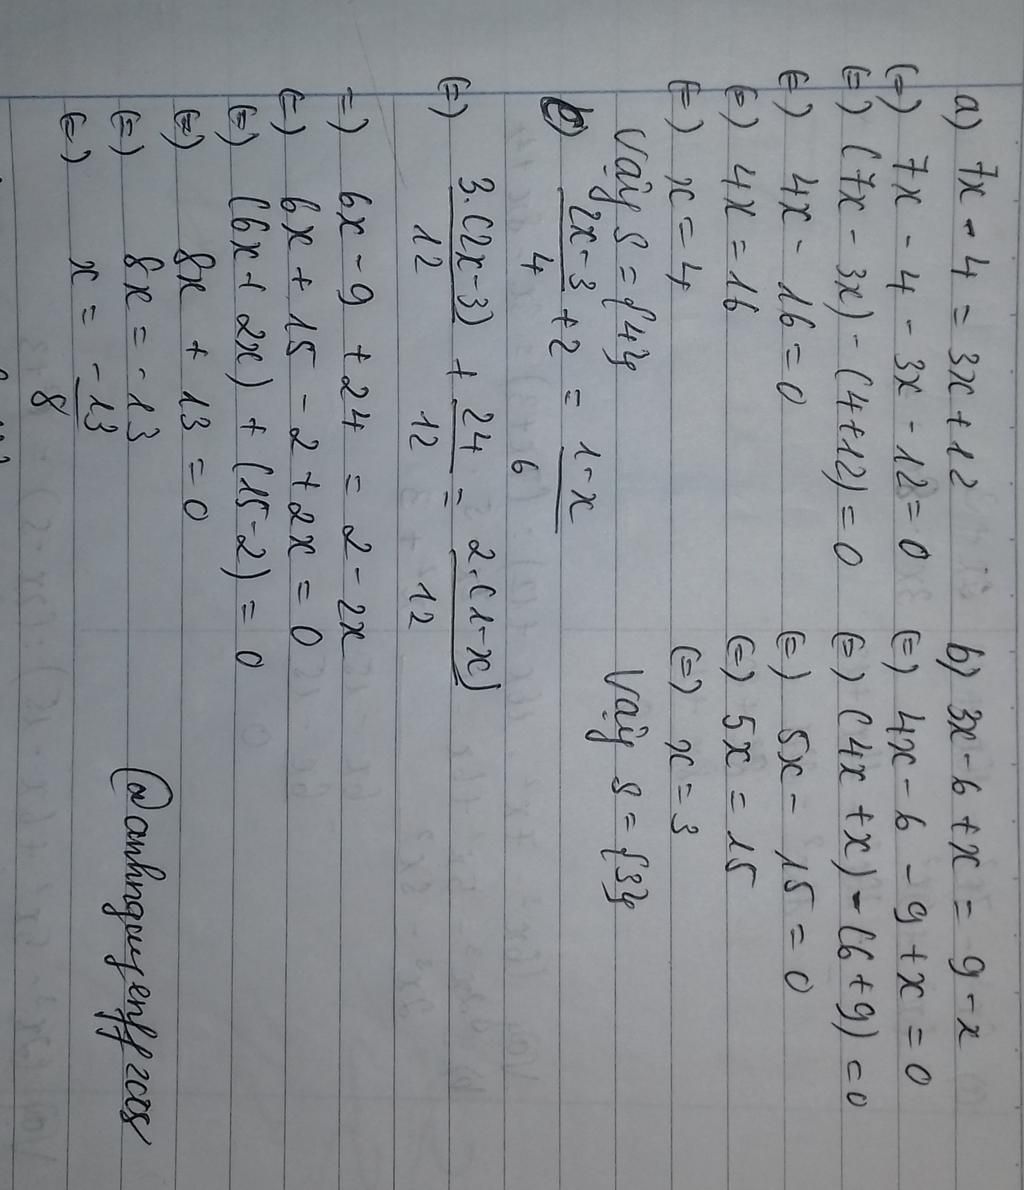 a) 7x - 4 = 3x + 12
(=) 7x - 4 - 3x - 12 = 0
(=) (7x - 3x) - (4+12) = 0
(=) 4x - 16 = 0
(=) 4x = 16
(=) x = 4
Vậy S = {4}
b) 3x - 6 + x = 9 - x
(=) 4x - 6 - 9 + x = 0
(=) (4x + x) - (6 + 9) = 0
(=) 5x - 15 = 0
(=) 5x = 15
(=) x = 3
Vậy S = {3}
c) (2x-3)/4 + 2 = (1-x)/6
(=) 3.(2x-3)/12 + 24/12 = 2.(1-x)/12
=) 6x - 9 + 24 = 2 - 2x
(=) 6x + 15 - 2 + 2x = 0
(=) (6x + 2x) + (15-2) = 0
(=) 8x + 13 = 0
(=) 8x = -13
(=) x = -13/8